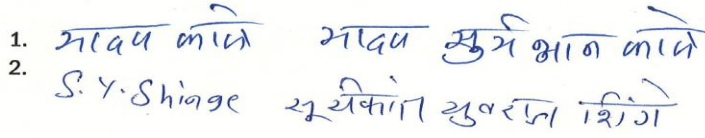 1. यादव काळे यादव सुर्यभान काळे
2. S. Y. Shinge सूर्यकांत युवराज शिंगे